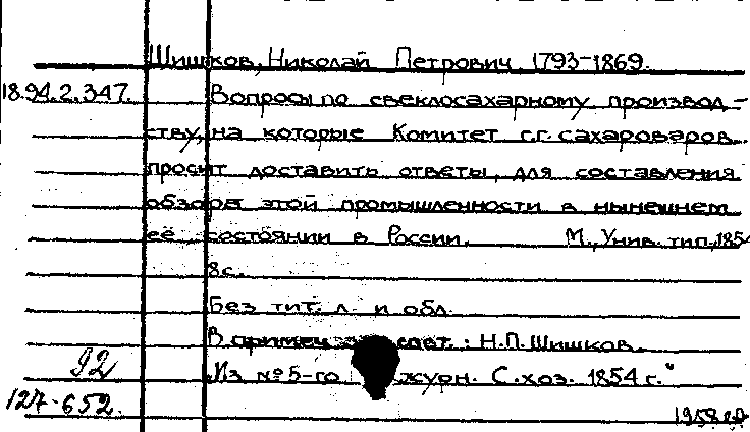 Шишков, Николай Петрович 1793-1869.
18.94.2.347. Вопросы по свеклосахарному производ-
ству, на которые Комитет г.г. сахароваров
просит доставить ответы, для составления
обзора этой промышленности в нынешнем
её состоянии в России. М., Унив. тип., 1854
8 с.
Без тит. л. и обл.
В примеч. : Н.П. Шишков.
92 Из №5-го журн. С.хоз. 1854 г."
127.652.